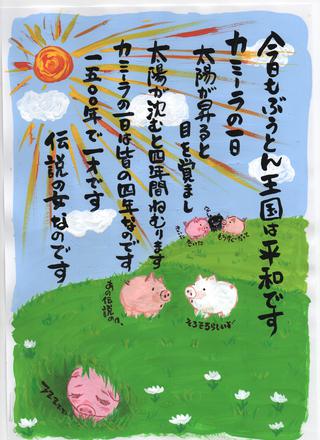 今日もぶうとん王国は平和です
カミーラの一日
太陽が昇ると
目を覚まし
太陽が沈むと四年間ねむります
カミーラの一日は皆の四年なのです
一五〇〇年で一才です
伝説の女なのです
あの伝説の、
そろそろらしいよ
ZZZzzz